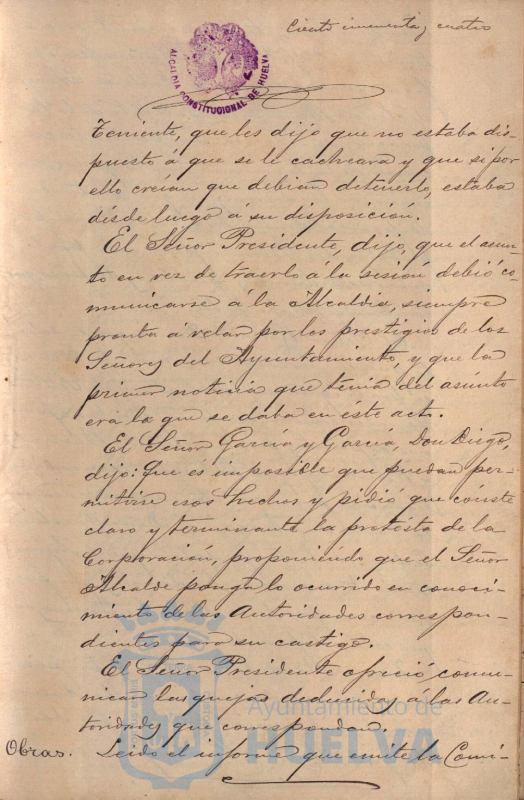 Ciento cincuenta y cuatro
ALCALDIA CONSTITUCIONAL DE HUELVA
Teniente, que les dijo que no estaba dis-
puesto á que se le cacheara y que si por
ello creían que debian detenerlo, estaba
désde luego á su disposición.
El Señor Presidente, dijo, que el asun-
to en vez de traerlo á la sesión debió co-
municarse á la Alcaldia, siempre
pronta á velar por los prestigios de los
Señores del Ayuntamiento, y que la
primer noticia que tenía del asúnto
era la que se daba en éste acto.
El Señor García y García, Don Diego,
dijo: Que es imposible que puedan per-
mitirse esos hechos y pidió que cónste
claro y terminante la protésta de la
Corporación, proponiendo que el Señor
Alcalde ponga lo ocurrido en conoci-
miento de las Autoridades correspon-
dientes para su castigo.
El Señor Presidente ofreció comu-
nicar las quejas deducidas á las Au-
toridades que correspondan.
Obras. Leido el informe que emite la Comi-
Ayuntamiento de
HUELVA